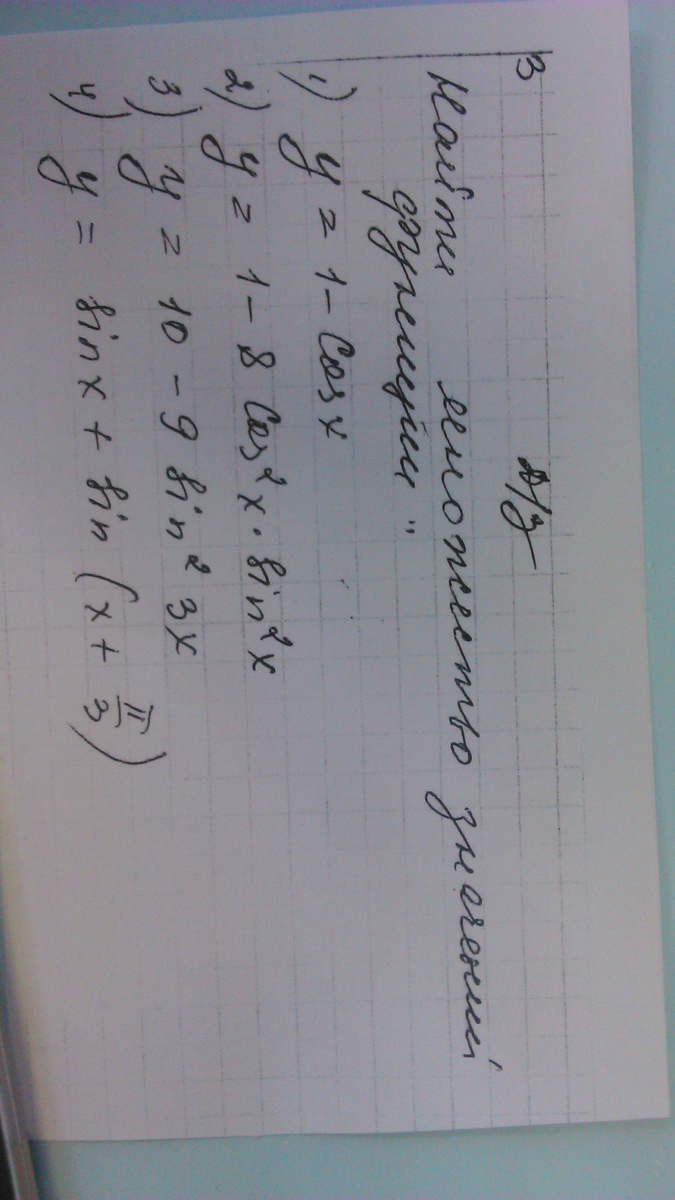 В
Д/З
Найти множество значений
функции"
1) y = 1 - Cos x
2) y = 1 - 8 Cos² x · sin² x
3) y = 10 - 9 sin² 3x
4) y = sin x + sin (x + π/3)